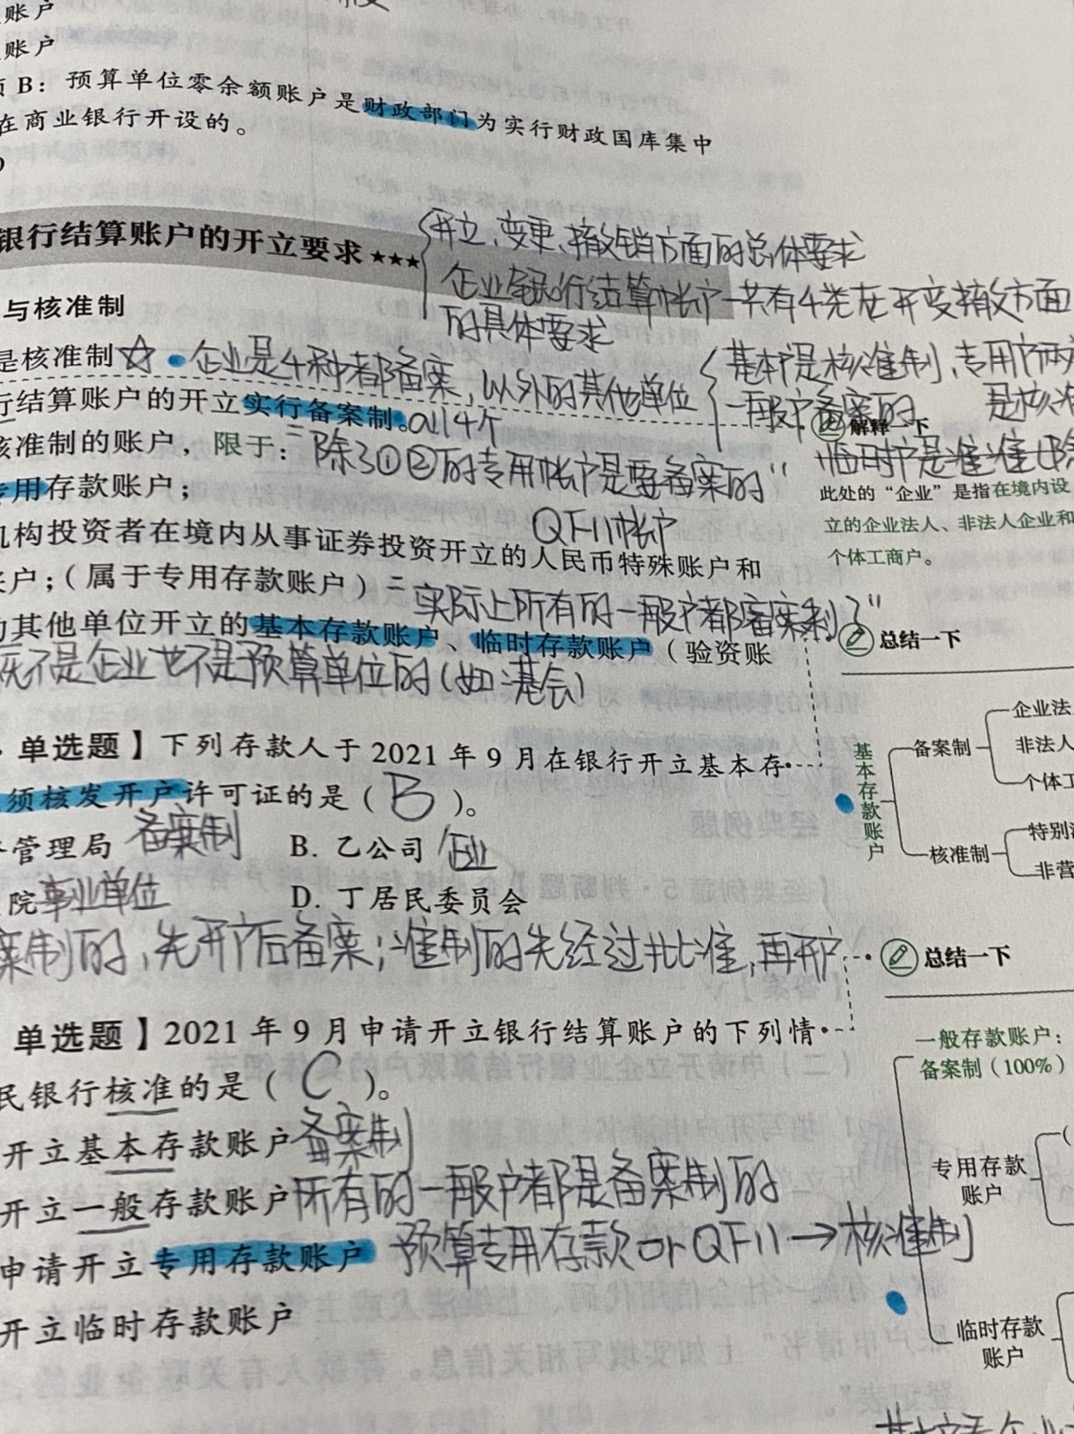 账户
账户
B：预算单位零余额账户是财政部门为实行财政国库集中
在商业银行开设的。
银行结算账户的开立要求★★★
开立、变更、撤销方面的总体要求
企业银行结算帐户一共有4类在开变撤方面
的具体要求
与核准制
是核准制☆•企业是4种都备案，以外的其他单位
基本户是核准制，专用户两
一般户备案的
行结算账户的开立实行备案制。all4个
核准制的账户，限于：
除了①②的专用帐户是要备案的"
专用存款账户；
QFII帐户
机构投资者在境内从事证券投资开立的人民币特殊账户和
账户；（属于专用存款账户）
实际上所有的一般户都备案制了"
的其他单位开立的基本存款账户、临时存款账户（验资账
既不是企业也不是预算单位的（如:基会）
解释一下
此处的“企业”是指在境内设
立的企业法人、非法人企业和
个体工商户。
总结一下
基本存款账户
备案制
企业法
非法人
个体工
核准制
特别
非营
单选题】下列存款人于 2021 年 9 月在银行开立基本存
须核发开户许可证的是（ B ）。
管理局 备案制 B. 乙公司 企业
院 事业单位 D. 丁居民委员会
案制的，先开户后备案；准制的先经过批准，再开户
总结一下
单选题】2021 年 9 月申请开立银行结算账户的下列情
民银行核准的是（ C ）。
开立基本存款账户 备案制
开立一般存款账户 所有的一般户都是备案制的
申请开立专用存款账户 预算专用存款or QFII→核准制
开立临时存款账户
一般存款账户：
备案制（100%）
专用存款
账户
临时存款
账户